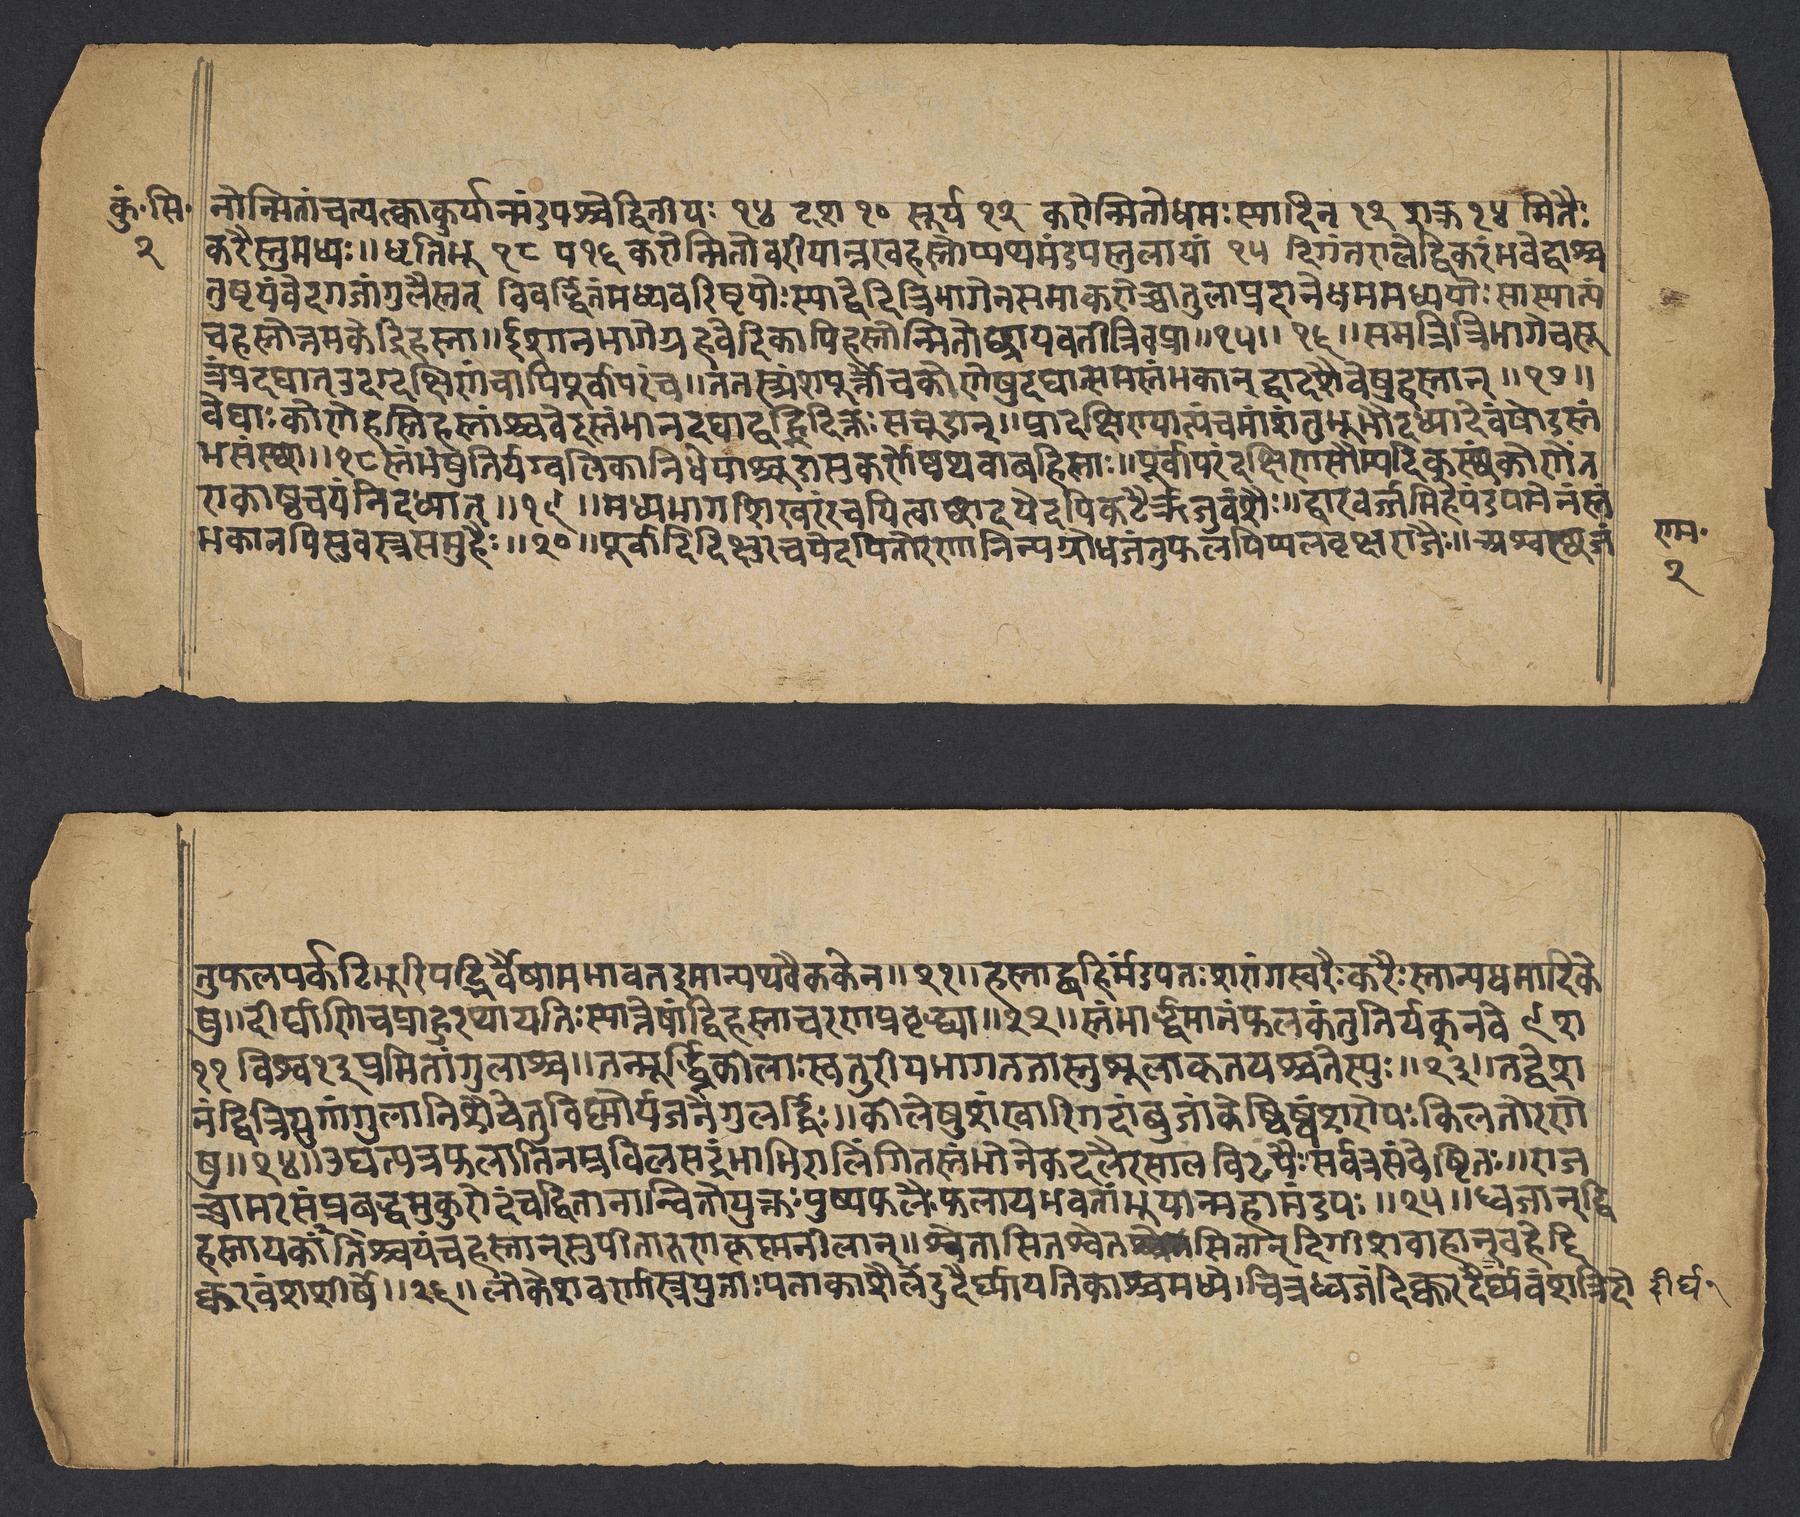 कुं॰सि॰
२
नोन्मितांचत्यत्क्वाकुर्यान्मंडपश्चेद्वितीयः १४ दश १० सूर्य १२ करोन्मितोधमःस्यादिन् १२ शक्र १४ मितैः
करैस्तुमध्यः॥धृतिभू १८ प १६ करोन्मितोवरीयान्नखहस्तोप्यथमंडपस्तुलायां १५ दिगंतरालैद्विकरंभवेद्वाश्च
तुष्टयंवेदगजांगुलैस्तत् विवर्द्धितंमध्यवरिष्ठयोःस्याद्वेदित्रिभागेनसमाकरोच्चातुलाप्रदानेधममध्ययोःसास्यात्पं
चहस्तोत्तमकेद्रिहस्ता॥ईशानभागेग्रहवेदिकापिहस्तोन्मितोछ्रायवतीत्रिवप्रा॥१५॥ १६॥समत्रित्रिभागेचसू
त्रंप्रदद्यात्उदग्दक्षिणंचापिपूर्वापरंच॥ततस्त्र्यंशपूर्त्तौचकोणेषुदद्यात्समस्तंभकान्द्वादशैवेषुहस्तान्॥१७॥
वेद्याःकोणेहस्तिहस्तांश्चवेदस्तंभानदद्याद्वह्निदिक्तःसचूडान्॥प्रादक्षिण्यात्पंचमांशंतुभूमौदध्यादेवंषोडस्तं
भसंस्था॥१८स्तंभेषुतिर्यग्वलिकानिधेयाश्चूडासुकर्णेष्वथवाबहिस्ताः॥पूर्वापरंदक्षिणसौम्यदिकुस्थंकोणेंत
राकाष्ठचयंनिदध्यात्॥१९॥मध्यभागशिखरंरचयित्वाछादयेदपिकटैर्ऋजुवंशैः॥द्वारवर्जमिहैपंडपमेनंस्तं
भकानपिसुवस्त्रसमुहैः॥२०॥पूर्वादिदिक्षुरचयेदपितोरणानिन्यग्रोधजंतुफलपिप्पलवृक्षराजैः॥अश्वस्थजं
राम॰
२
तुफलपर्कटिभूरिपद्भिर्वैषामभावतडमान्यथवैककेन॥२१॥हस्ताद्बहिंर्मडपतःशरांगस्वरैःकरैःस्तान्यधमादिके
षु॥दीर्घाणिचप्राहुरथायतिःस्यात्तेषांद्विहस्ताचरणप्रवृद्ध्या॥२२॥स्तंभार्द्धमानंफलकंतुतिर्यकूनवे ९ श
११ विश्व१३प्रमितांगुलाश्च॥तन्मूर्द्ध्निकीलाःस्वतुरीयभागततास्तुश्रूलाकतयश्चतेस्युः॥२३॥तद्वेश
नंद्वित्रियुगांगुलानिशैचेतुविष्णौर्यजनेंगुलर्द्धिः॥कीलेषुशंखारिगदांबुजांकेष्विष्वंशरोपःकिलतोरणे
षु॥२४॥उद्यत्पत्रफलातिनम्रविलसद्रंभाभिरालिंगितस्तंभोनेकदलैरसालविटपैःसर्वत्रसंवेष्टितः॥राज
च्चामरसंप्रबद्धमुकुरोदंचद्वितानान्वितोयुक्तःपुष्पफलैःफलायभवतांभूयान्महामंडपः॥२५॥ध्वजान्द्वि
हस्तायकांतिश्चयंचहस्तान्सुपीतारुणकृष्णनीलान्॥श्वेतासितश्वेतसितान्दिगीशवाहान्वहेद्दि
क्करवंशशीर्षे॥२६॥लोकेशवर्णास्त्रयुताःपताकाशैलेंदुदैर्घ्यायतिकाश्चमध्ये।चित्रध्वजंदिक्करदैर्घ्यवंशंत्रिदो
दीर्घ